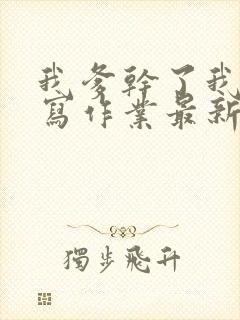 我爹幹了我
寫作業最新
獨步飛升